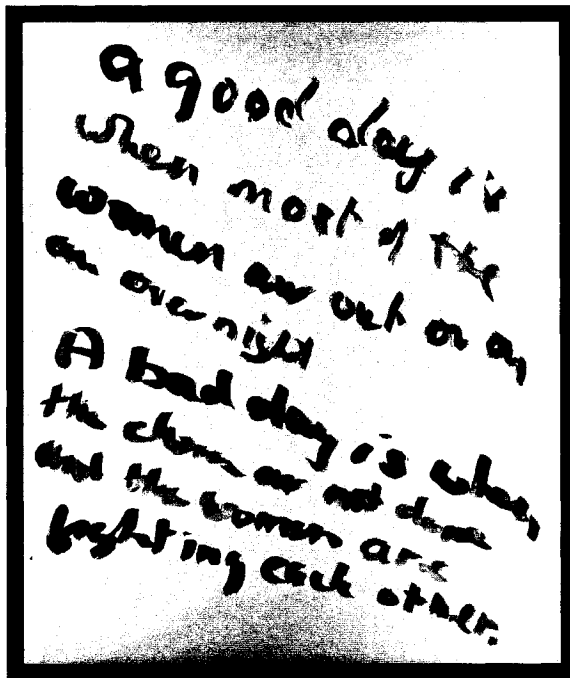 a good day is
when most of the
women are out or on
an overnight
A bad day is when
the chores are not done
and the women are
fighting each other.